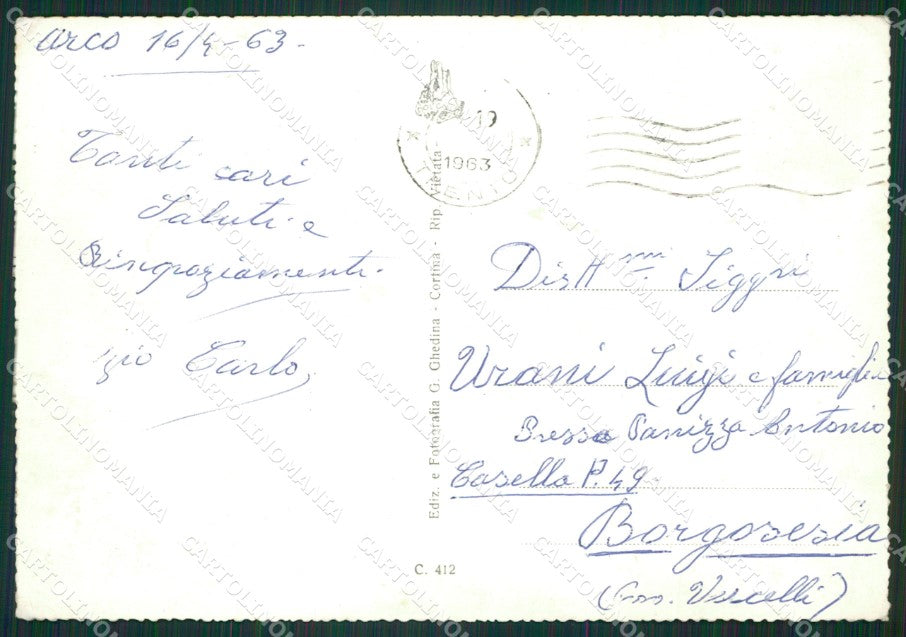 Arco 16/4-63.
Tanti cari
Saluti e
Ringraziamenti.
zio Carlo
19
1963
TRENTO
Ediz. e Fotografia G. Ghedina - Cortina - Rip. Vietata
C. 412
Distt.mi Siggri
Urani Luigi e famiglia
Presso Panizza Antonio
Casella P. 49
Borgosesia
(Prov. Vercelli)
CARTOLINOMANIA